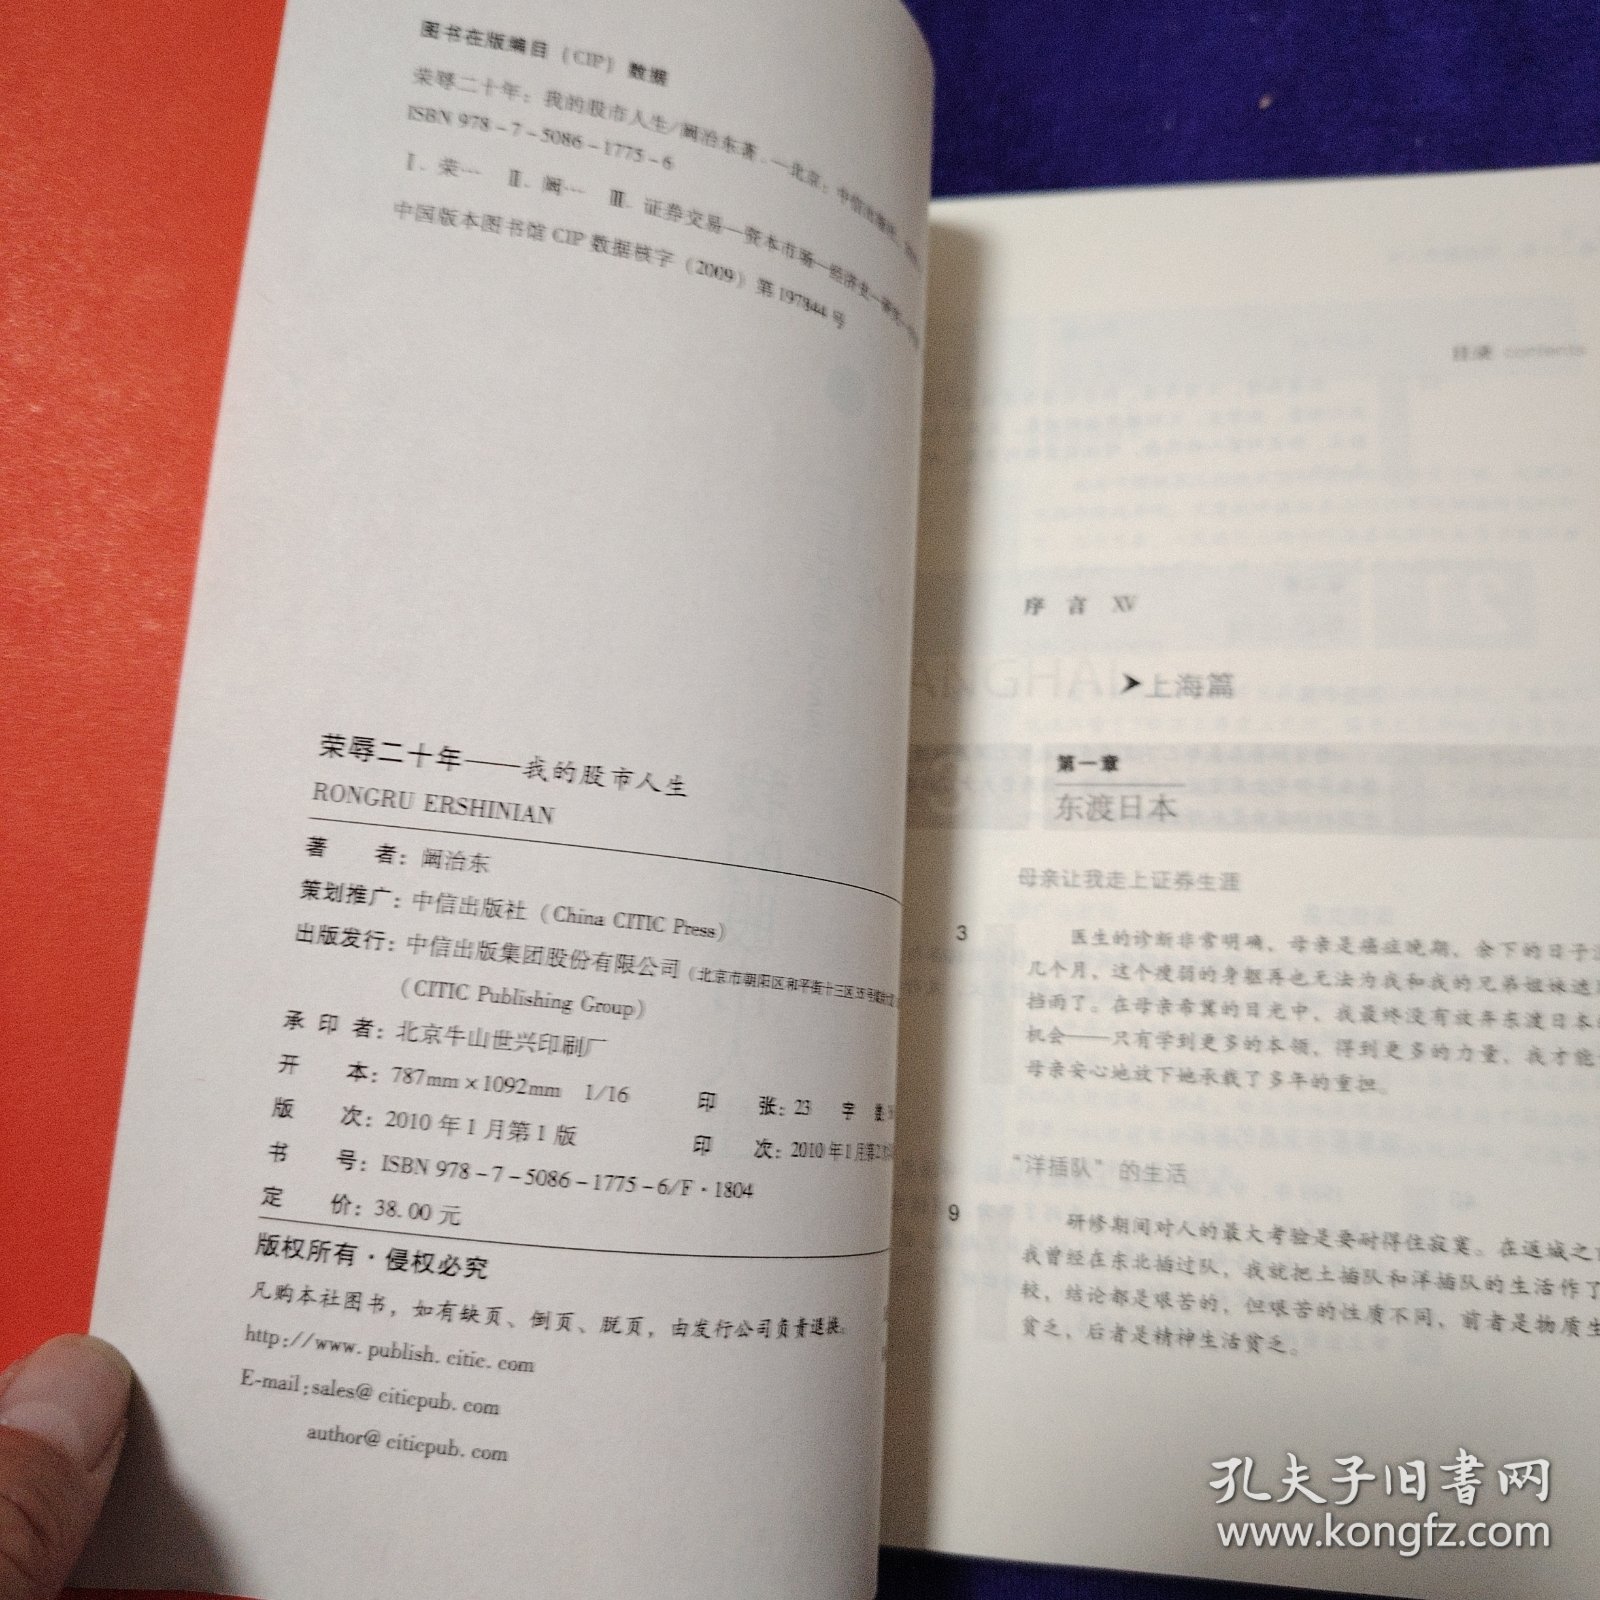 图书在版编目（CIP）数据
荣辱二十年：我的股市人生/阚治东著．—北京：中信出版社
ISBN 978－7－5086－1775－6
Ⅰ．荣… Ⅱ．阚… Ⅲ．证券交易—资本市场—经济史
中国版本图书馆 CIP 数据核字（2009）第 197844 号
荣辱二十年——我的股市人生
RONGRU ERSHINIAN
著 者：阚治东
策划推广：中信出版社（China CITIC Press）
出版发行：中信出版集团股份有限公司（北京市朝阳区和平街十三区35号
（CITIC Publishing Group）
承 印 者：北京牛山世兴印刷厂
开 本：787mm×1092mm 1/16 印 张：23 字
版 次：2010 年 1 月第 1 版 印 次：2010 年 1 月第2
书 号：ISBN 978－7－5086－1775－6/F·1804
定 价：38.00 元
版权所有·侵权必究
凡购本社图书，如有缺页、倒页、脱页，由发行公司负责退换。
http://www.publish.citic.com
E-mail:sales@citicpub.com
author@citicpub.com
目录 contents
序 言 XV
➤上海篇
第一章
东渡日本
母亲让我走上证券生涯
3 医生的诊断非常明确，母亲是癌症晚期，余下的日子
几个月，这个瘦弱的身躯再也无法为我和我的兄弟姐妹遮
挡雨了。在母亲希冀的目光中，我最终没有放弃东渡日本
机会——只有学到更多的本领，得到更多的力量，我才能
母亲安心地放下她承载了多年的重担。
“洋插队”的生活
9 研修期间对人的最大考验是要耐得住寂寞。在返城之
我曾经在东北插过队，我就把土插队和洋插队的生活作了
较，结论都是艰苦的，但艰苦的性质不同，前者是物质生
贫乏，后者是精神生活贫乏。
孔夫子旧书网
www.kongfz.com